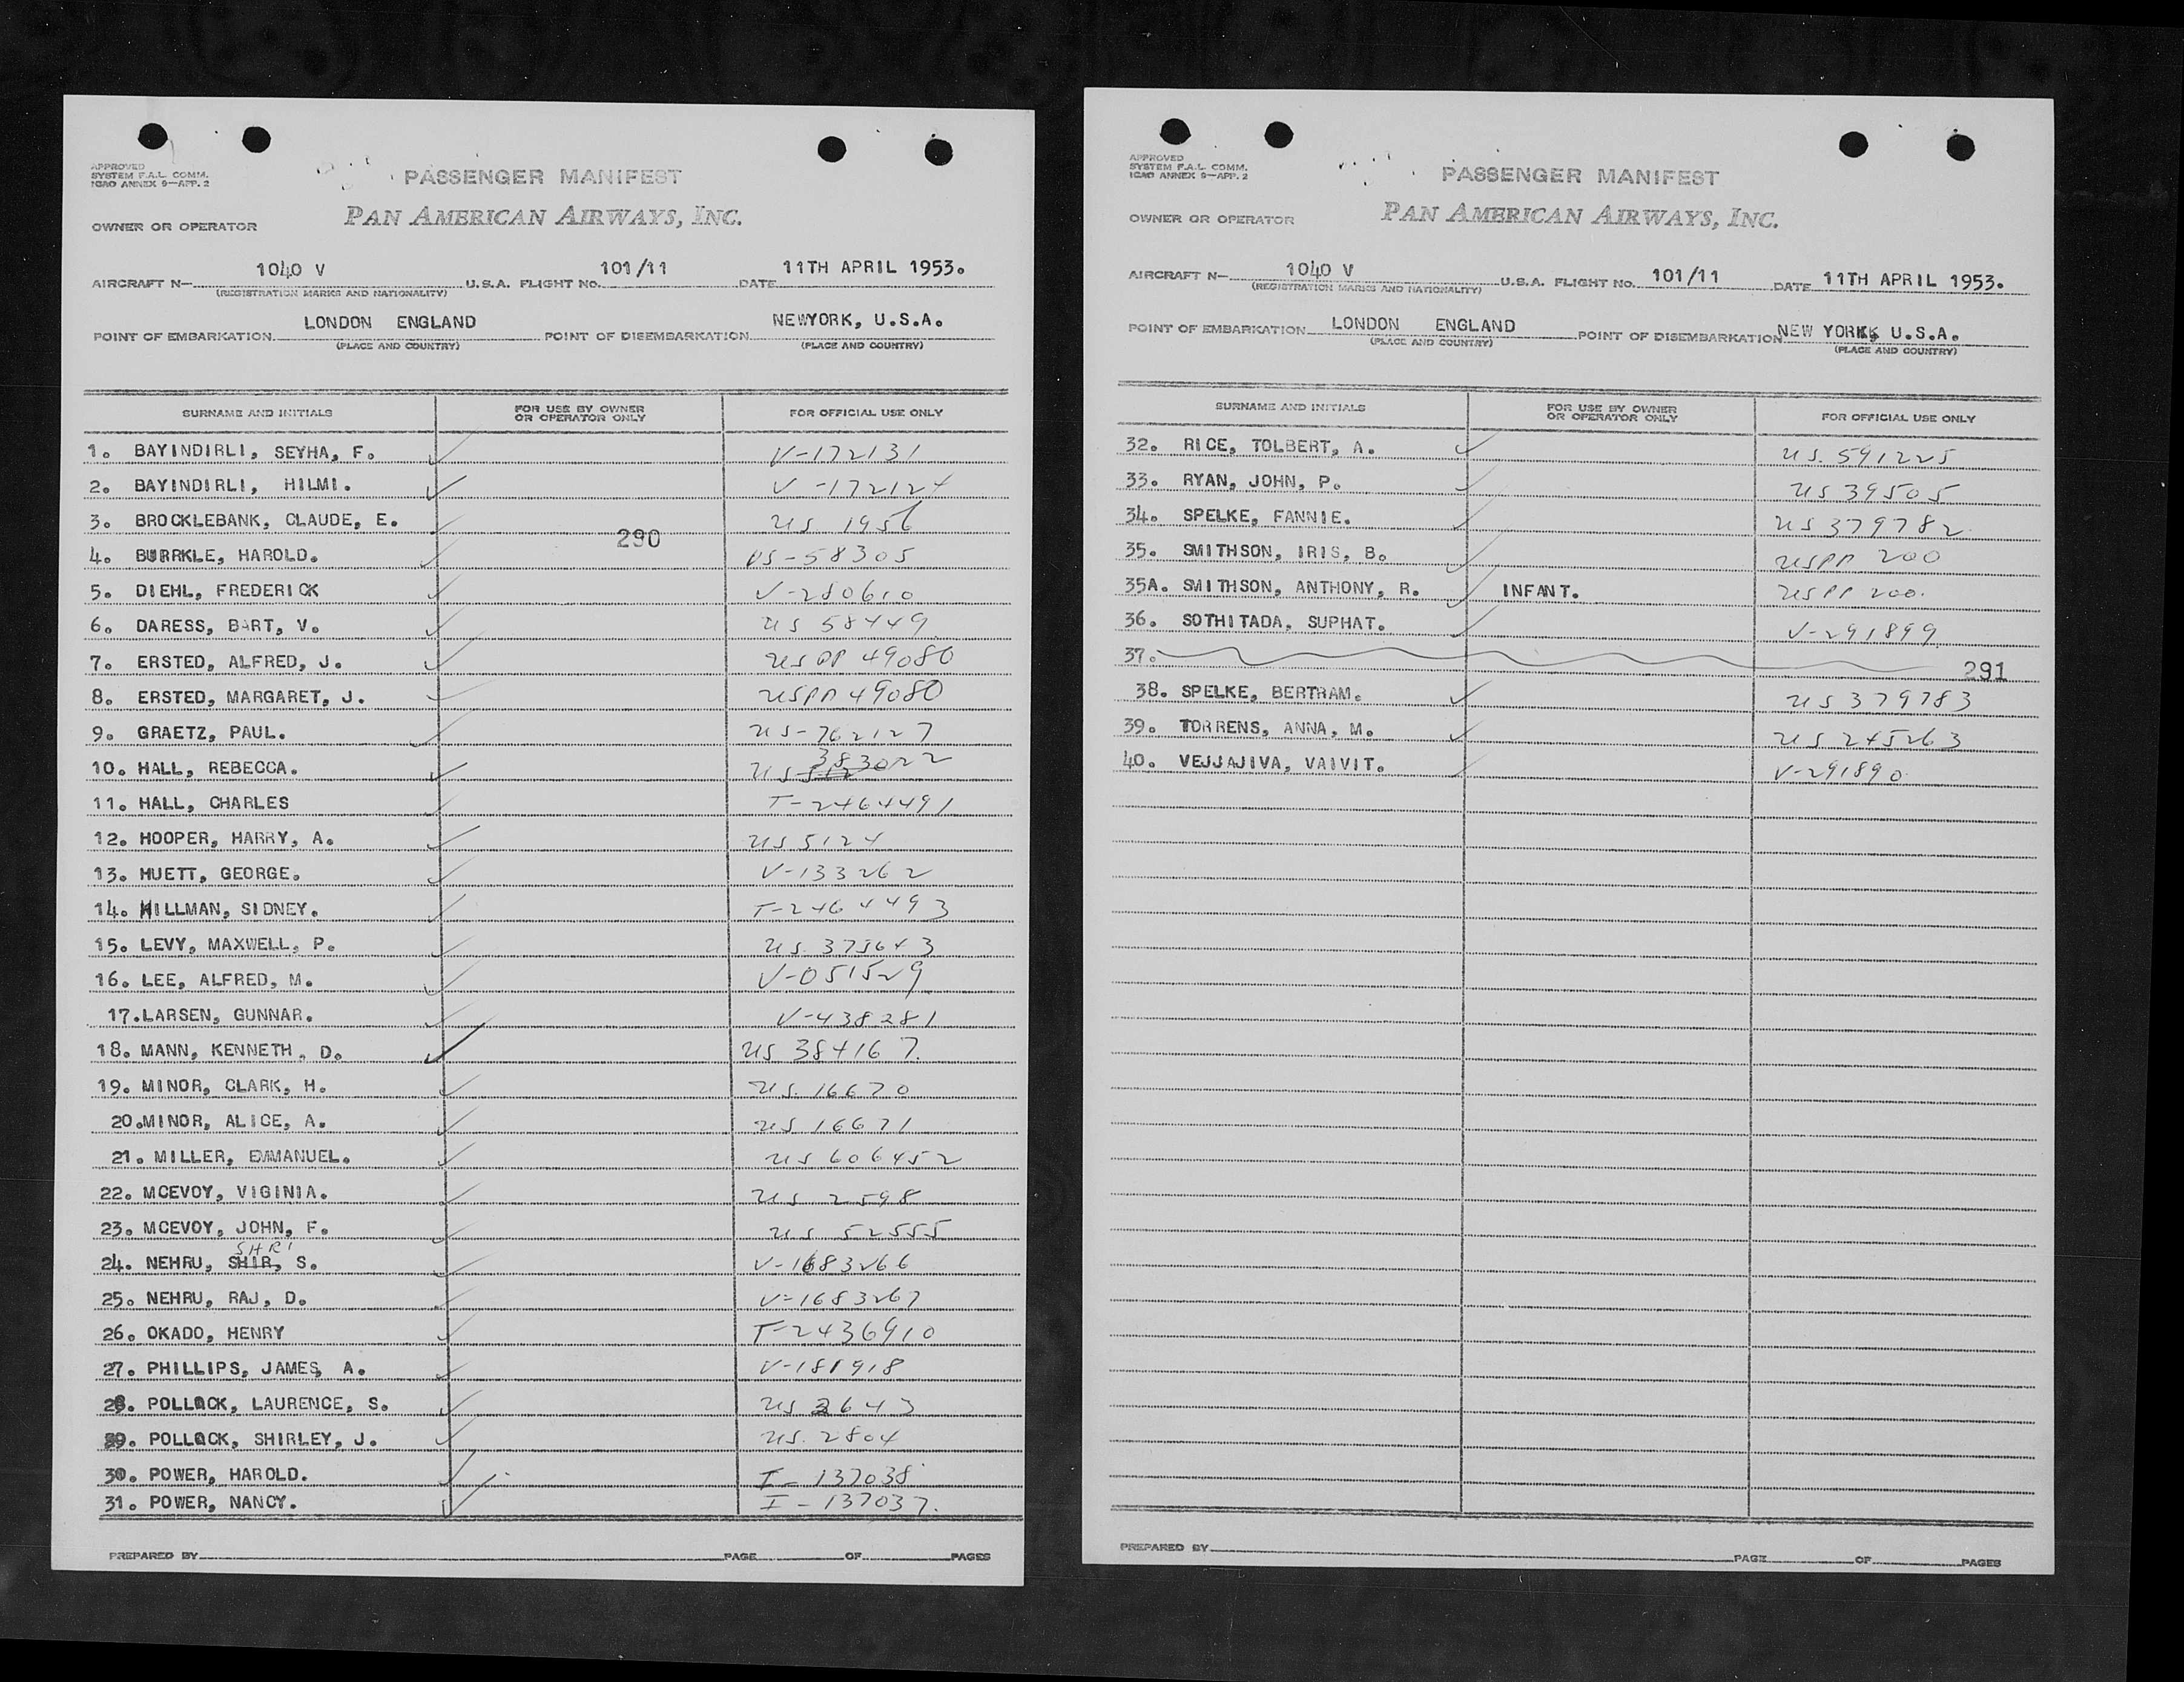 APPROVED
SYSTEM F.A.L. COMM.
ICAO ANNEX 9—APP. 2
PASSENGER MANIFEST
OWNER OR OPERATOR PAN AMERICAN AIRWAYS, INC.
AIRCRAFT N— 1040 V U.S.A. FLIGHT No. 101/11 DATE 11TH APRIL 1953.
(REGISTRATION MARKS AND NATIONALITY)
POINT OF EMBARKATION LONDON ENGLAND POINT OF DISEMBARKATION NEWYORK, U.S.A.
(PLACE AND COUNTRY) (PLACE AND COUNTRY)
SURNAME AND INITIALS FOR USE BY OWNER OR OPERATOR ONLY FOR OFFICIAL USE ONLY
1. BAYINDIRLI, SEYHA, F. V-172131
2. BAYINDIRLI, HILMI. V-172124
3. BROCKLEBANK, CLAUDE, E. US 1956
290
4. BURRKLE, HAROLD. DS-58305
5. DIEHL, FREDERICK V-280610
6. DARESS, BART, V. US 58449
7. ERSTED, ALFRED, J. US PP 49080
8. ERSTED, MARGARET, J. US PP 49080
9. GRAETZ, PAUL. US-762127
10. HALL, REBECCA. US 383022
11. HALL, CHARLES T-2464491
12. HOOPER, HARRY, A. US 5124
13. HUETT, GEORGE. V-133262
14. HILLMAN, SIDNEY. T-2464493
15. LEVY, MAXWELL, P. US. 375643
16. LEE, ALFRED, M. V-051529
17. LARSEN, GUNNAR. V-438281
18. MANN, KENNETH, D. US 384167.
19. MINOR, CLARK, H. US. 16670
20. MINOR, ALICE, A. US 16671
21. MILLER, EMMANUEL. US 606452
22. MCEVOY, VIGINIA. US 2598
23. MCEVOY, JOHN, F. US 52555
SHRI
24. NEHRU, SHIR, S. V-1683266
25. NEHRU, RAJ, D. V-1683267
26. OKADO, HENRY T-2436910
27. PHILLIPS, JAMES, A. V-181918
28. POLLOCK, LAURENCE, S. US 2643
29. POLLOCK, SHIRLEY, J. US. 2804
30. POWER, HAROLD. I-137038
31. POWER, NANCY. I-137037.
PREPARED BY PAGE OF PAGES
APPROVED
SYSTEM F.A.L. COMM.
ICAO ANNEX 9—APP. 2
PASSENGER MANIFEST
OWNER OR OPERATOR PAN AMERICAN AIRWAYS, INC.
AIRCRAFT N— 1040 V U.S.A. FLIGHT No. 101/11 DATE 11TH APRIL 1953.
(REGISTRATION MARKS AND NATIONALITY)
POINT OF EMBARKATION LONDON ENGLAND POINT OF DISEMBARKATION NEW YORK, U.S.A.
(PLACE AND COUNTRY) (PLACE AND COUNTRY)
SURNAME AND INITIALS FOR USE BY OWNER OR OPERATOR ONLY FOR OFFICIAL USE ONLY
32. RICE, TOLBERT, A. US. 591225
33. RYAN, JOHN, P. US 39505
34. SPELKE, FANNIE. US 379782
35. SMITHSON, IRIS, B. US PP 200
35A. SMITHSON, ANTHONY, R. INFANT. US PP 200.
36. SOTHITADA, SUPHAT. V-291899
37. 291
38. SPELKE, BERTRAM. US 379783
39. TORRENS, ANNA, M. US 245263
40. VEJJAJIVA, VAIVIT. V-291890
PREPARED BY PAGE OF PAGES